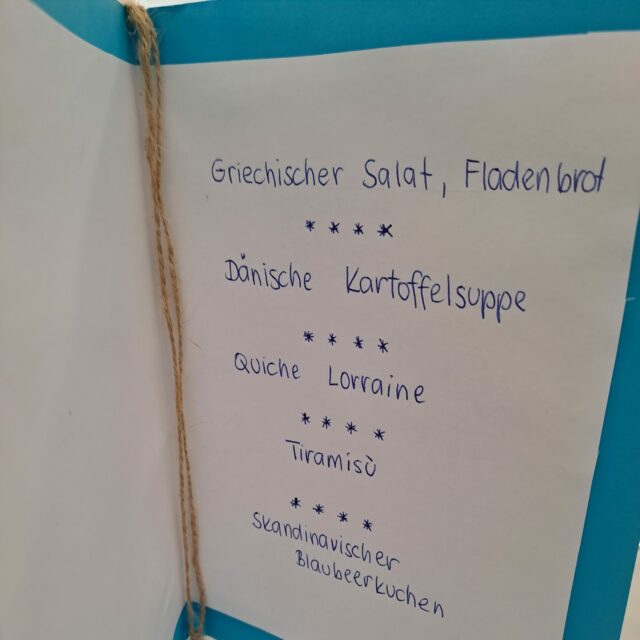 Griechischer Salat, Fladenbrot
* * * *
Dänische Kartoffelsuppe
* * * *
Quiche Lorraine
* * * *
Tiramisù
* * * *
Skandinavischer
Blaubeerkuchen